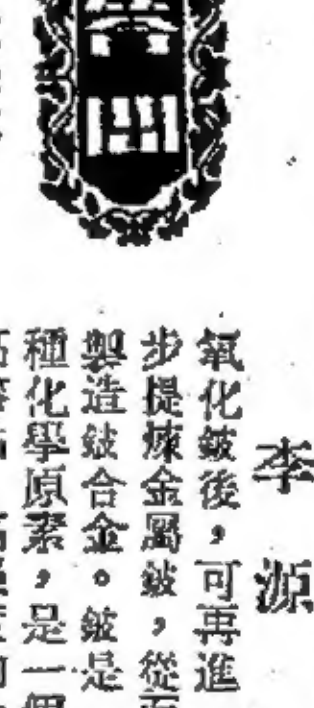 李源
氧化鈹後，可再進
步提煉金屬鈹，從而
製造鈹合金。鈹是
種化學原素，是一個